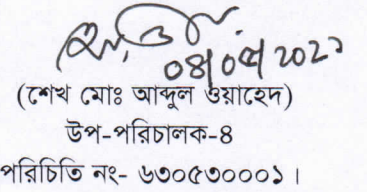 08/05/2021
(শেখ মোঃ আব্দুল ওয়াহেদ)
উপ-পরিচালক-৪
পরিচিতি নং- ৬৩০৫৩০০০১।